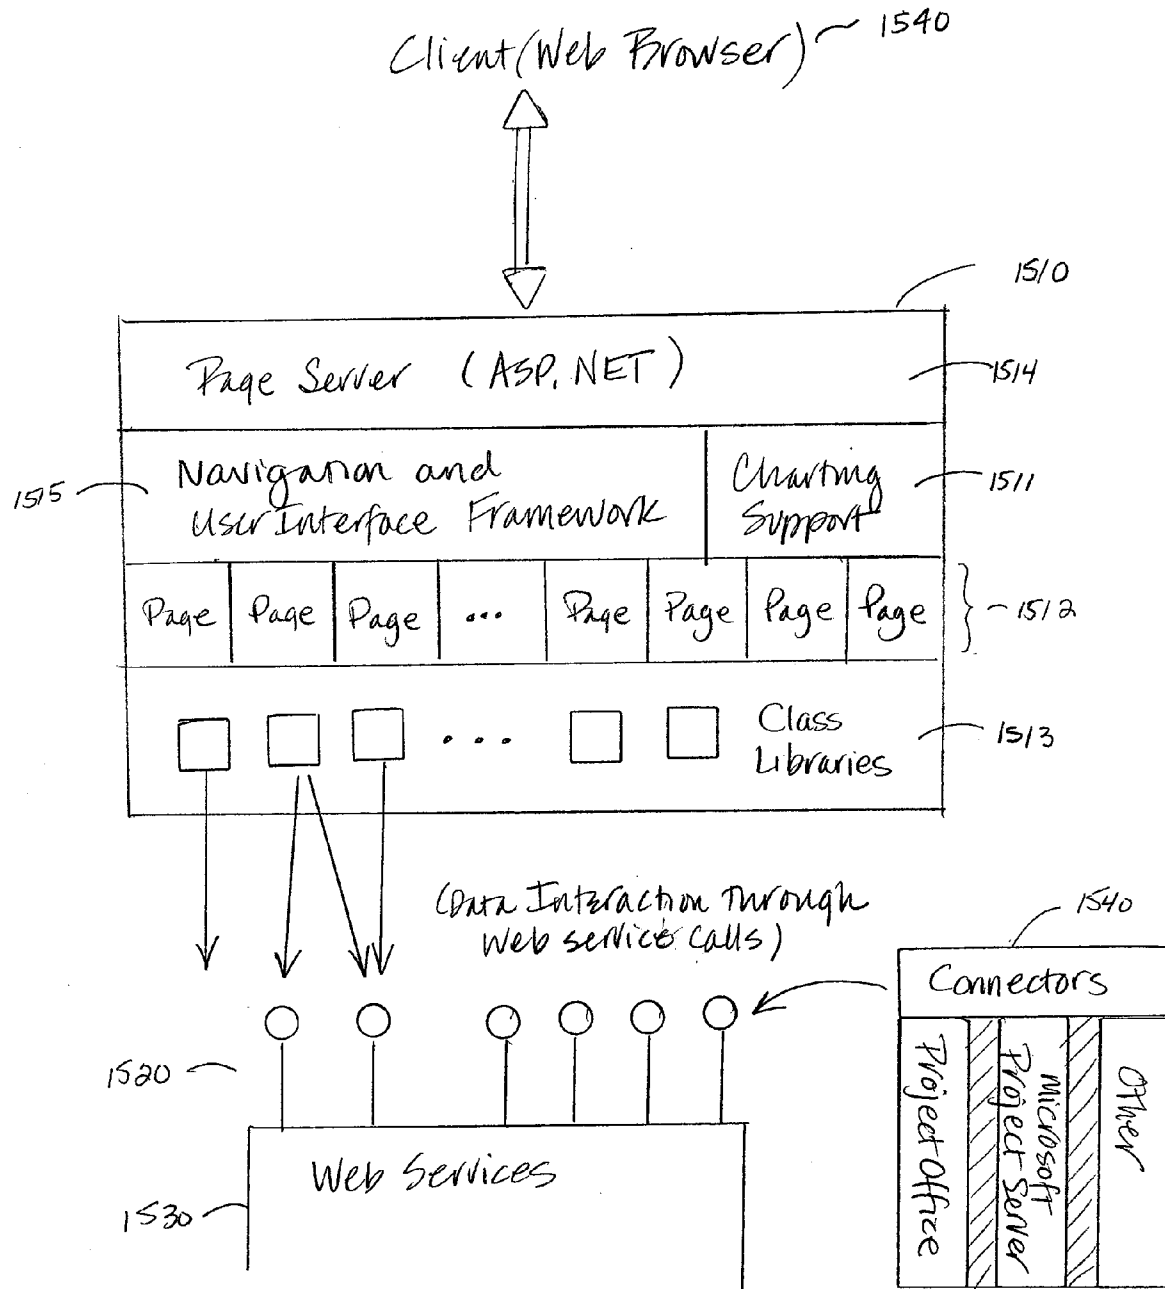 Client (Web Browser) 1540
1510
Page Server (ASP.NET) 1514
1515 Navigation and
User Interface Framework
Charting 1511
Support
Page Page Page ... Page Page Page Page 1512
... Class
Libraries 1513
(Data Interaction Through
Web service calls)
1540
Connectors
Project Office
Microsoft
Project Server
Other
1520
Web Services
1530